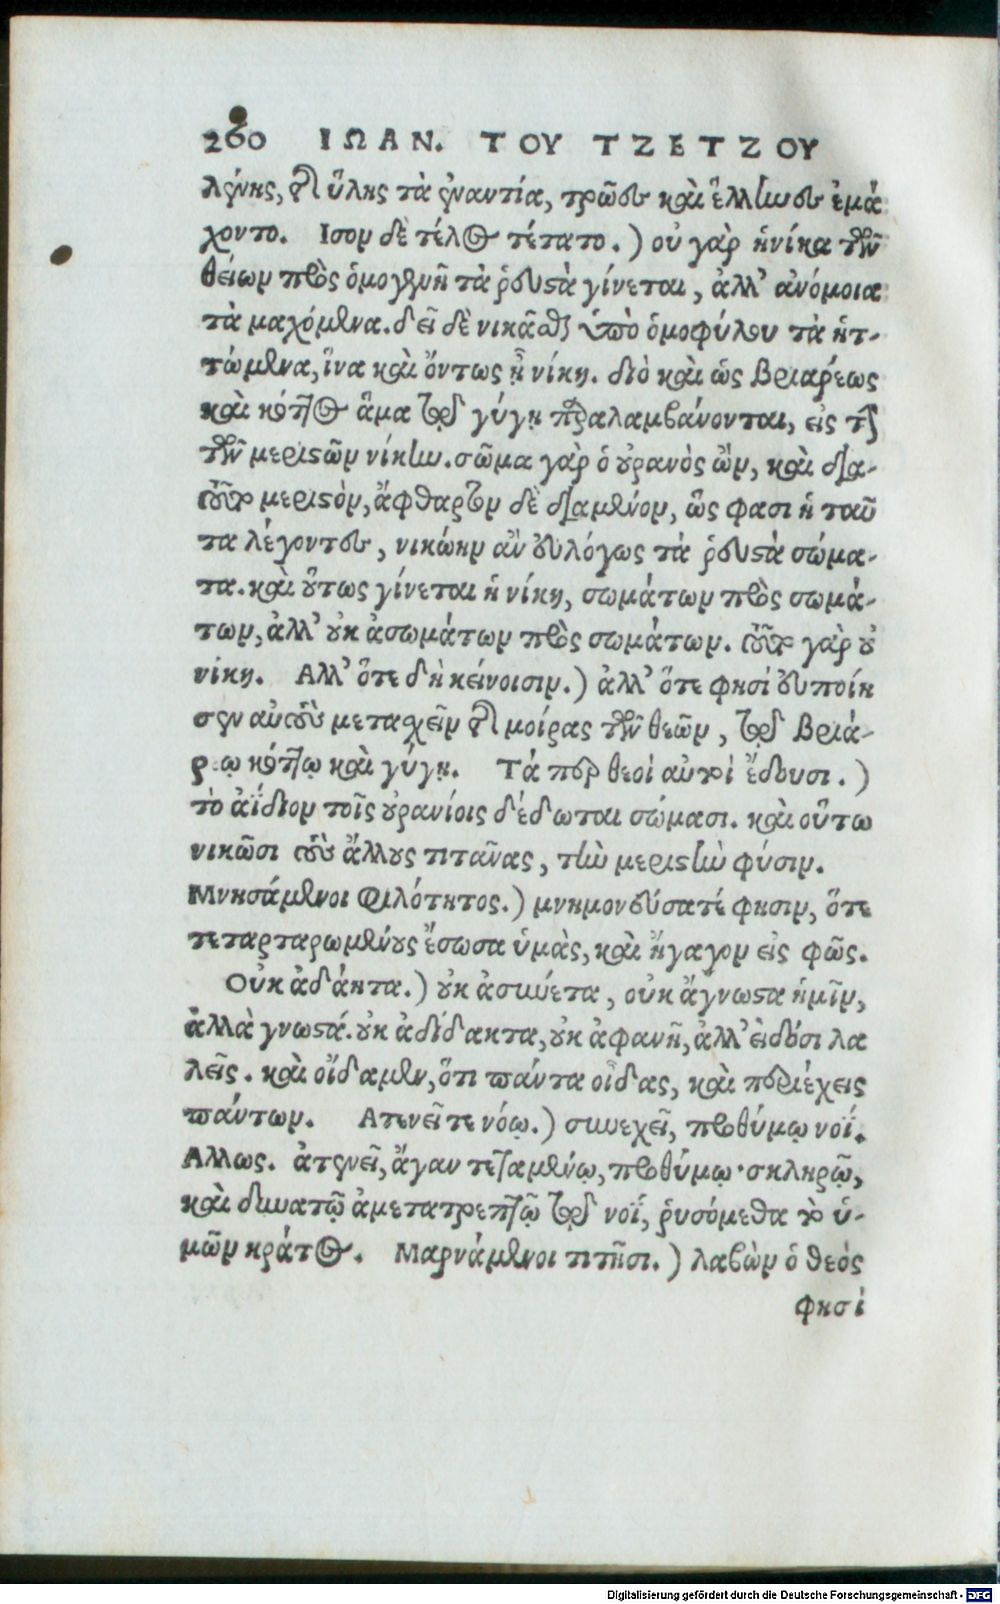 260 ΙΩΑΝ. ΤΟΥ ΤΖΕΤΖΟΥ
λήνης, ὕλης τὰ ἐναντία, τρῶες καὶ ἕλληνες ἐμά
χοντο. Ισον δὲ τέλος τέτατο.) οὐ γὰρ ἡνίκα τῶν
θείων πρὸς ὁμογενῆ τὰ ῥευστὰ γίνεται, ἀλλ' ἀνόμοια
τὰ μαχόμενα. δεῖ δὲ νικᾶσθαι ὑπὸ ὁμοφύλου τὰ ἡτ-
τώμενα, ἵνα καὶ ὄντως ᾖ νίκη. διὸ καὶ ὡς βριαρέως
καὶ κόττος ἅμα τῷ γύγῃ παραλαμβάνονται, εἰς τὴν
τῶν μεριστῶν νίκην. σῶμα γὰρ ὁ οὐρανὸς ὢν, καὶ δια-
τοῦτο μεριστὸν, ἄφθαρτον δὲ διαμένον, ὥς φασι ἡ ταῦ
τα λέγοντες, νικώῃ ἂν εὐλόγως τὰ ῥευστὰ σώμα-
τα. καὶ οὕτως γίνεται ἡ νίκη, σωμάτων πρὸς σωμά-
των, ἀλλ' οὐκ ἀσωμάτων πρὸς σωμάτων. τοῦτο γὰρ οὐ
νίκη. Αλλ' ὅτε δὴ κείνοισιν.) ἀλλ' ὅτε φησί εὐποίη
σεν αὐτοὺς μετασχεῖν μοίρας τῶν θεῶν, τῷ βριά-
ρεῳ κόττῳ καὶ γύγῃ. Τά περ θεοὶ αὐτοὶ ἔδουσι.)
τὸ ἀΐδιον τοῖς οὐρανίοις δέδωται σώμασι. καὶ οὕτω
νικῶσι τοὺς ἄλλους τιτᾶνας, τὴν μεριστὴν φύσιν.
Μνησάμενοι φιλότητος.) μνημονεύσατέ φησιν, ὅτε
τεταρταρωμένους ἔσωσα ὑμὰς, καὶ ἤγαγον εἰς φῶς.
Οὐκ ἀδάητα.) οὐκ ἀσύνετα, οὐκ ἄγνωστα ἡμῖν,
ἀλλὰ γνωστά. οὐκ ἀδίδακτα, οὐκ ἀφανῆ, ἀλλ' εἰδόσι λα
λεῖς. καὶ οἴδαμεν, ὅτι πάντα οἶδας, καὶ περιέχεις
πάντων. Ατενεῖ τε νόῳ.) συνεχεῖ, προθύμῳ νοΐ.
Αλλως. ἀτενεῖ, ἄγαν τεταμένῳ, προθύμῳ· σκληρῷ,
καὶ δυνατῷ ἀμετατρεπτῷ τῷ νοΐ, ῥυσόμεθα τὸ ὑ-
μῶν κράτος. Μαρνάμενοι τιτῆσι.) λαβὼν ὁ θεός
φησί
Digitalisierung gefördert durch die Deutsche Forschungsgemeinschaft - DFG